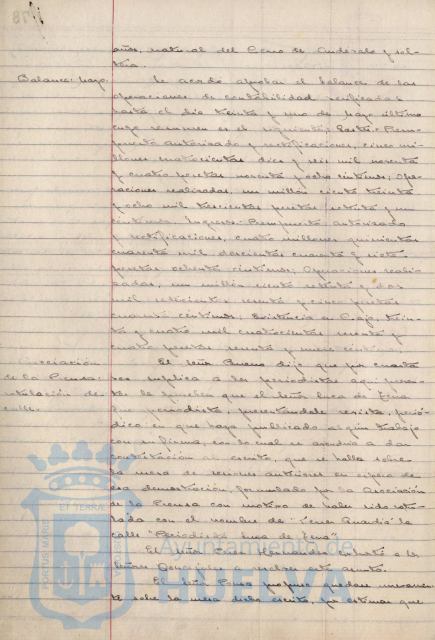 años, natural del Cerro de Andévalo y sol-
tera.
Balance: mayo. Se acordó aprobar el balance de las
operaciones de contabilidad verificadas
hasta el día treinta y uno de mayo último
cuyo resumen es el siguiente: Gastos: Presu-
puesto autorizado y rectificaciones, cinco mi-
llones cuatrocientas diez y seis mil noventa
y cuatro pesetas noventa y ocho céntimos; Ope-
raciones realizadas, un millón ciento treinta
y ocho mil trescientas pesetas setenta y un
céntimos. Ingresos: Presupuesto autorizado
y rectificaciones, cuatro millones quinientas
cuarenta mil doscientas cuarenta y siete
pesetas ochenta céntimos; Operaciones reali-
zadas, un millón ciento setenta y dos
mil setecientas sesenta y cinco pesetas
cuarenta céntimos; Existencia en Caja, trein-
ta y cuatro mil cuatrocientas sesenta y
cuatro pesetas sesenta y nueve céntimos.
Asociación El señor Bueno dijo que por cuarta
de la Prensa: vez suplica a los periodistas aquí presen-
rotulación de tes la prueba que el señor Luca de Tena
calle. fue periodista, presentándole revista, perió-
dico en que haya publicado algún trabajo
con su firma, con lo cual se ayudaría a dar
contestación al escrito, que se halla sobre
la mesa de sesiones anteriores en espera de
esa demostración, formulado por la Asociación
de la Prensa con motivo de haber sido rotu-
lada con el nombre de "
la
calle "Periodista Luca de Tena".
El señor
Hernández
a los
señores Concejales a resolver este asunto.
El señor
propuso quedara nuevamen-
te sobre la mesa dicho escrito, por estimar que
PORTUS MARIS
ET TERRAE
Ayuntamiento de
HUELVA